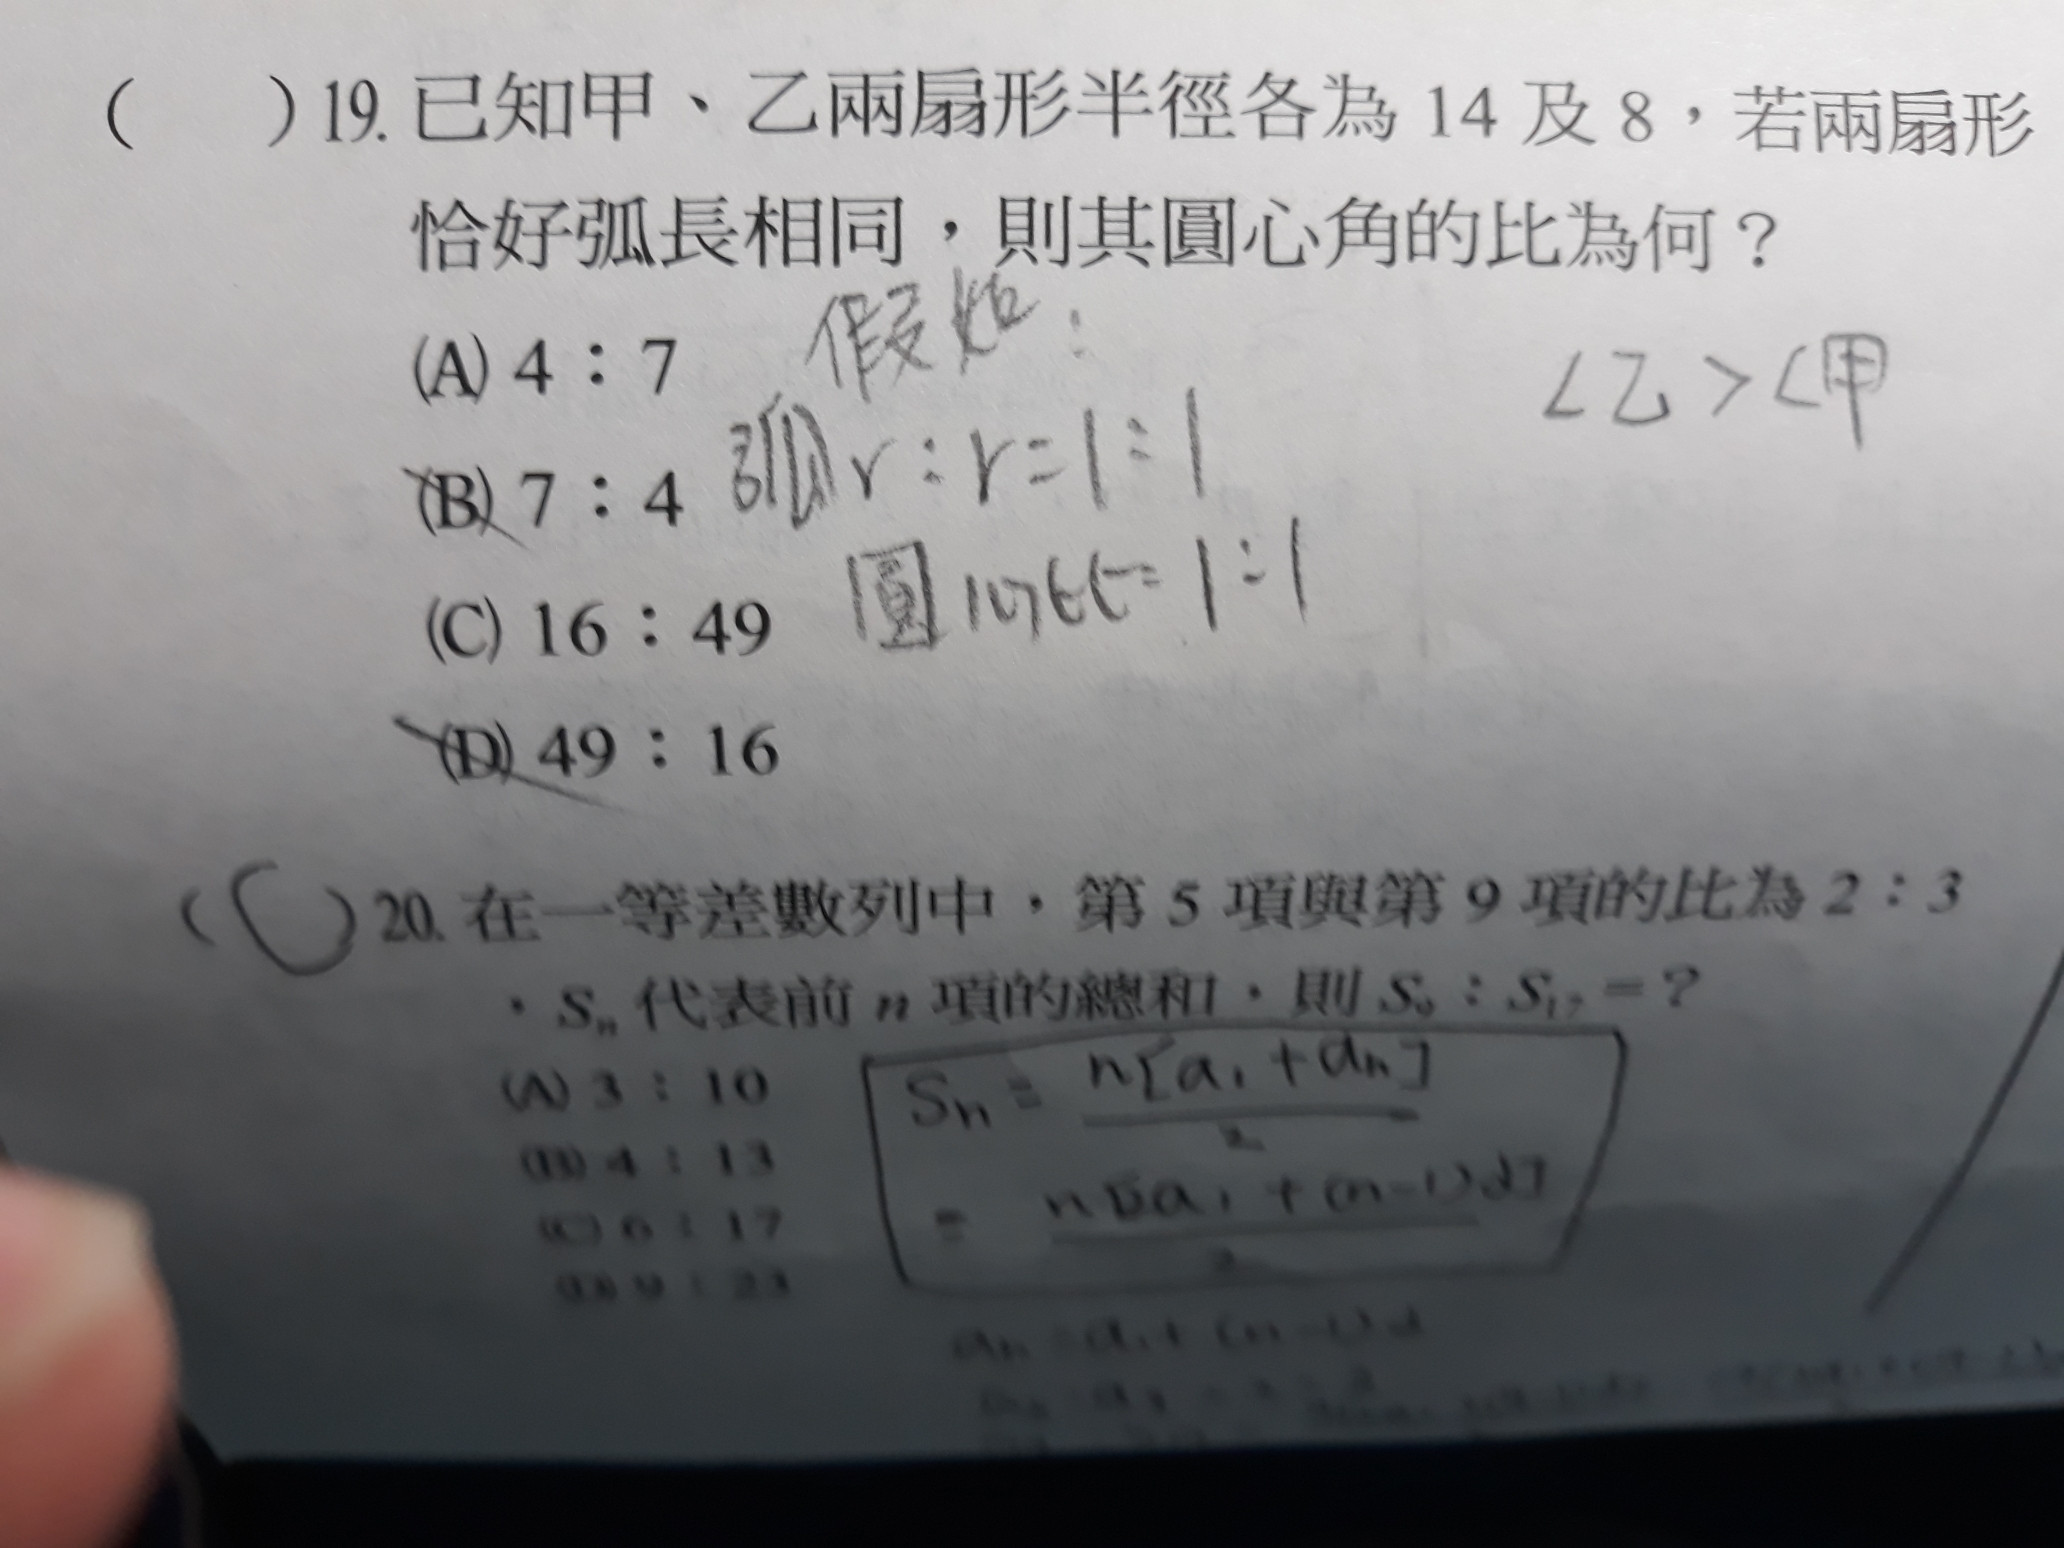 (　　)19. 已知甲、乙兩扇形半徑各為 14 及 8，若兩扇形
恰好弧長相同，則其圓心角的比為何？
假如：
(A) 4：7
∠乙>∠甲
(B) 7：4
弧 r：r=1：1
(C) 16：49
圓心角比=1：1
(D) 49：16
(C)20. 在一等差數列中，第 5 項與第 9 項的比為 2：3
，Sn 代表前 n 項的總和，則 S9：S17 =？
(A) 3：10
Sn = n[a1+an]/2
(B) 4：13
= n[2a1+(n-1)d]/2
(C) 6：17
(D) 9：23
an=a1+(n-1)d